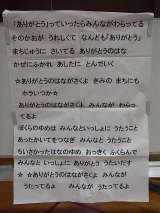 「ありがとう」っていったらみんながわらってる
そのかおが うれしくて なんども「ありがとう」
まちじゅうに さいてる ありがとうのはな
かぜにふかれ あしたに とんでいく
☆ありがとうのはながさくよ きみの まちにも
ホラ いつか☆
ありがとうのはながさくよ みんなが わらっ
てるよ
ぼくらのゆめは みんなといっしょに うたうこと
あったかいてをつなぎ みんなと うたうこと
ちいさかったはなのゆめ おっきく ふくらんで
みんなと いっしょに ありがとう うたいだす
☆ ☆ありがとうのはながさくよ みんなが
うたってるよ みんなが うたってるよ